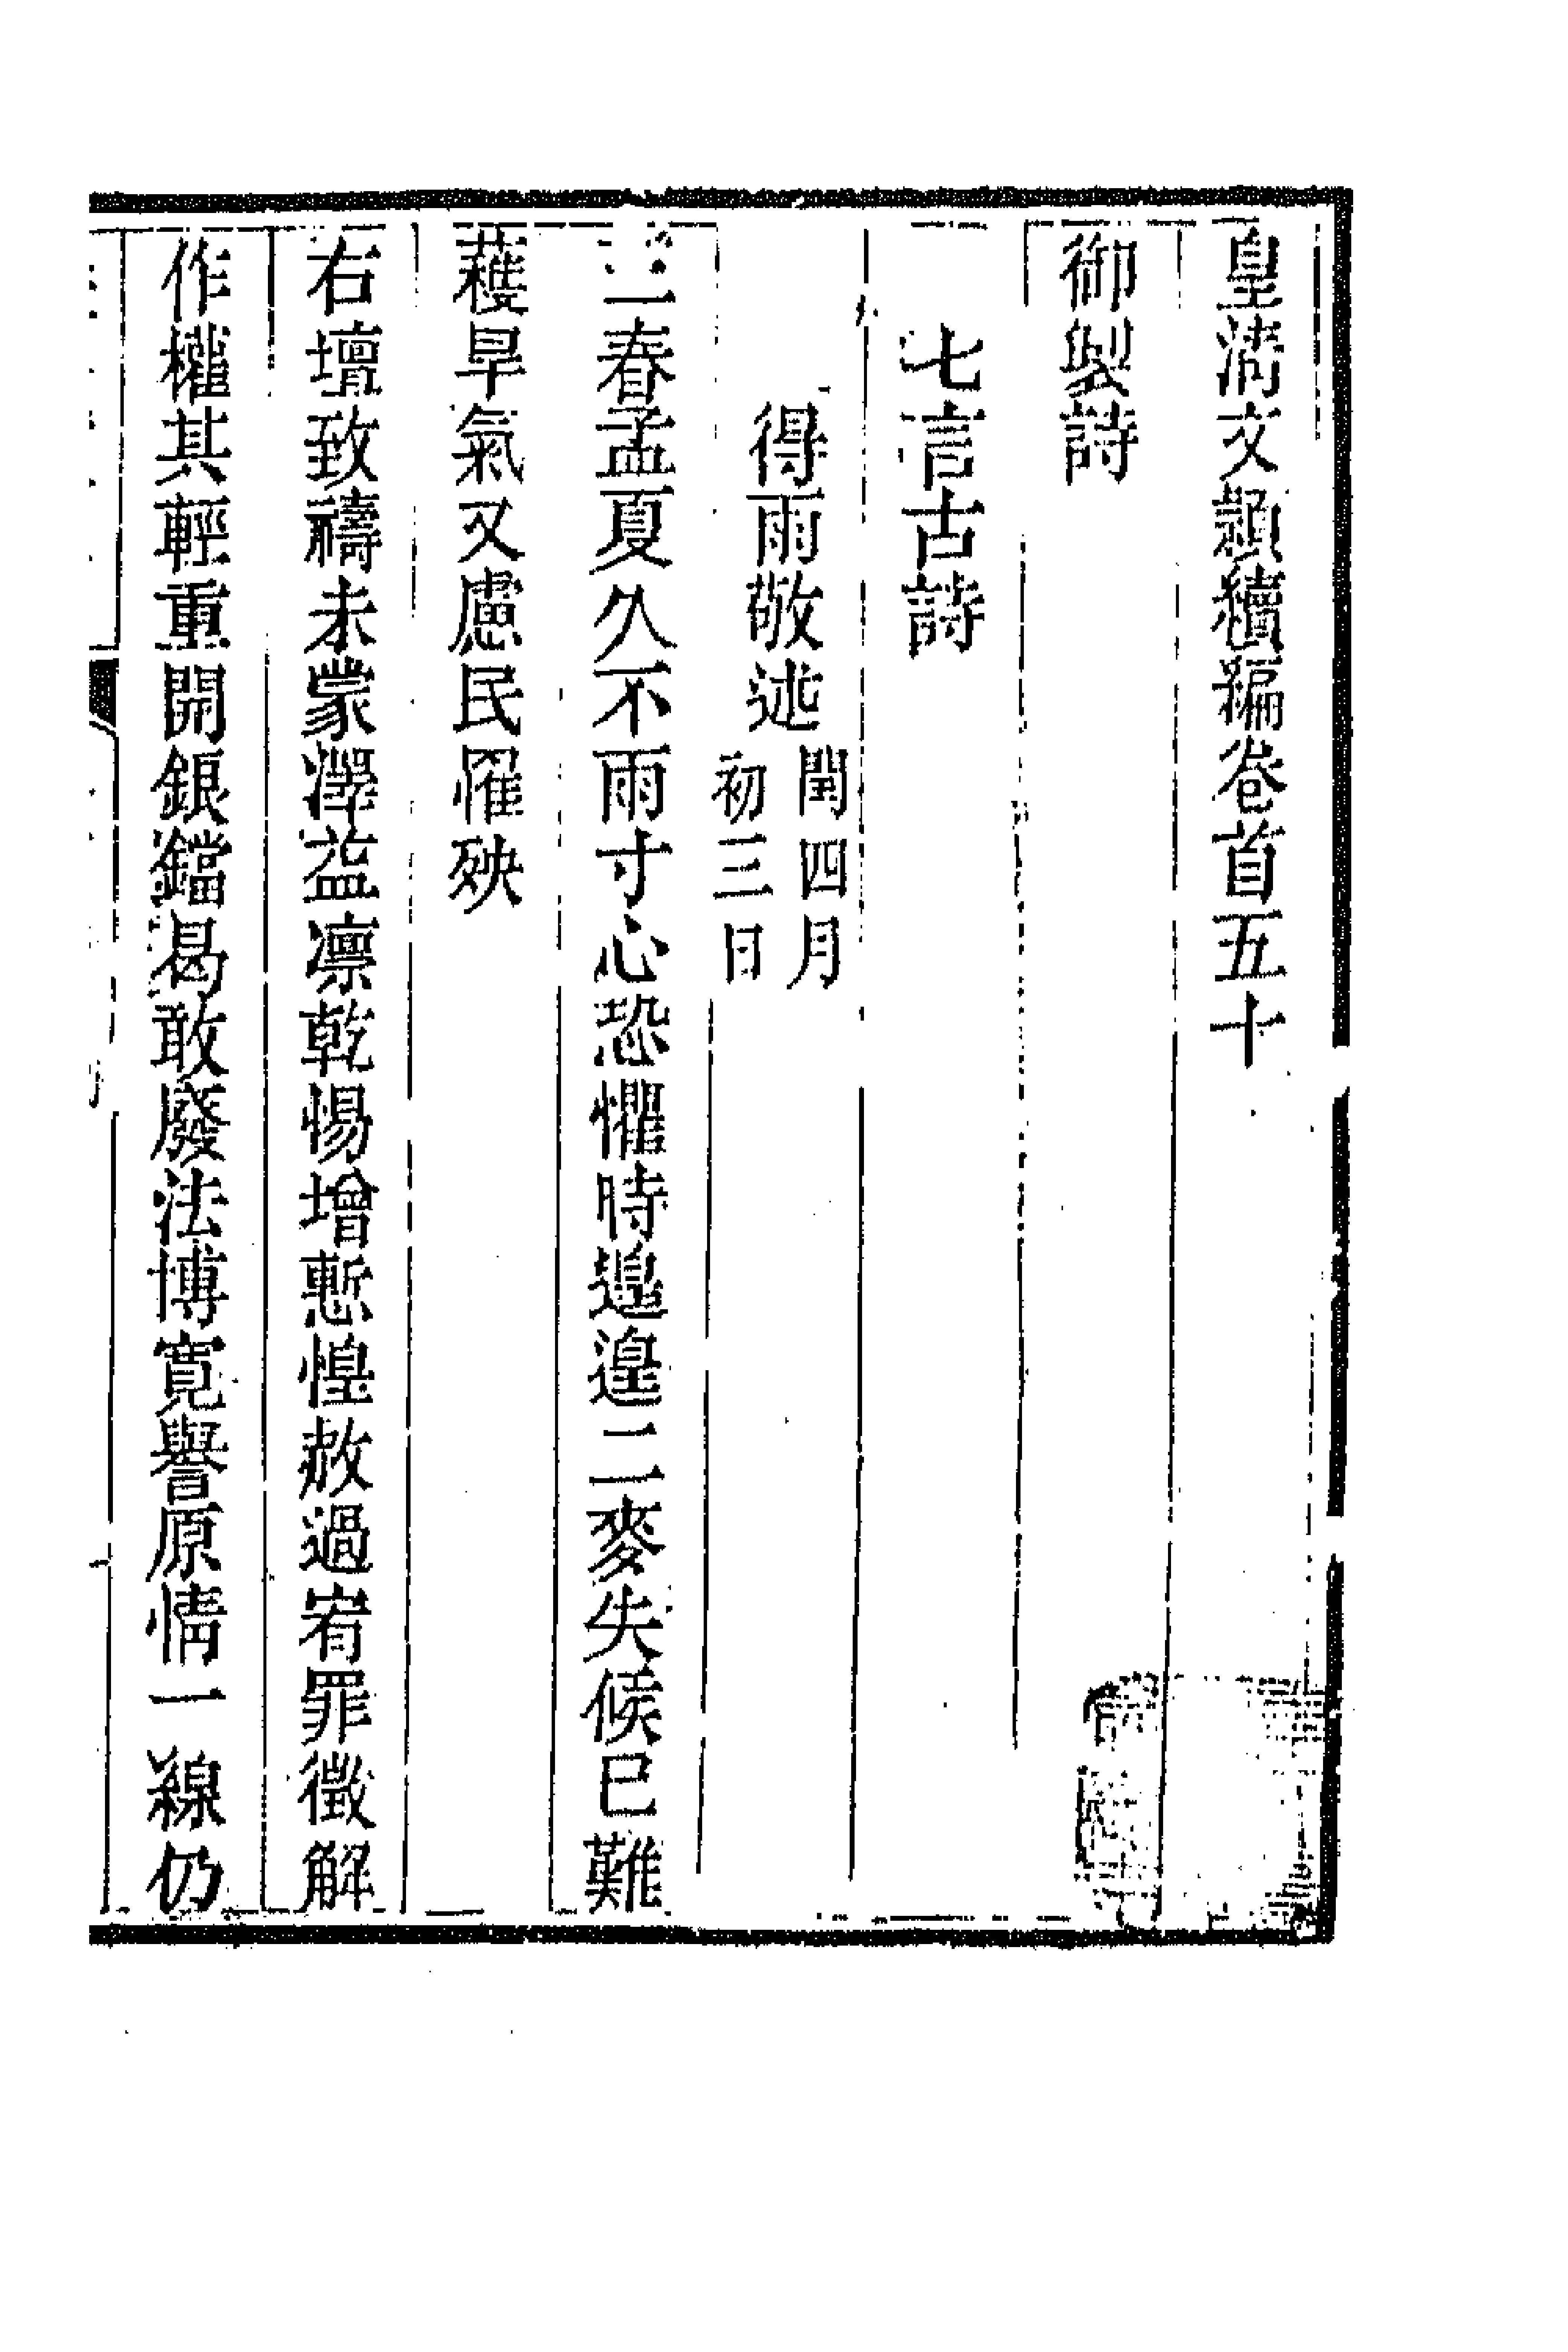 皇淸文頴續編卷首五十
御製詩
七言古詩
得雨敬述
閏四月
初三日
三春孟夏久不雨寸心恐懼時遑遑二麥失候已難
蓻旱氣又慮民罹殃
右壇致禱未蒙澤益凛乾惕增慙惶赦過宥罪徵解
作權其輕重開鋃鐺曷敢廢法博寬譽原情一線仍